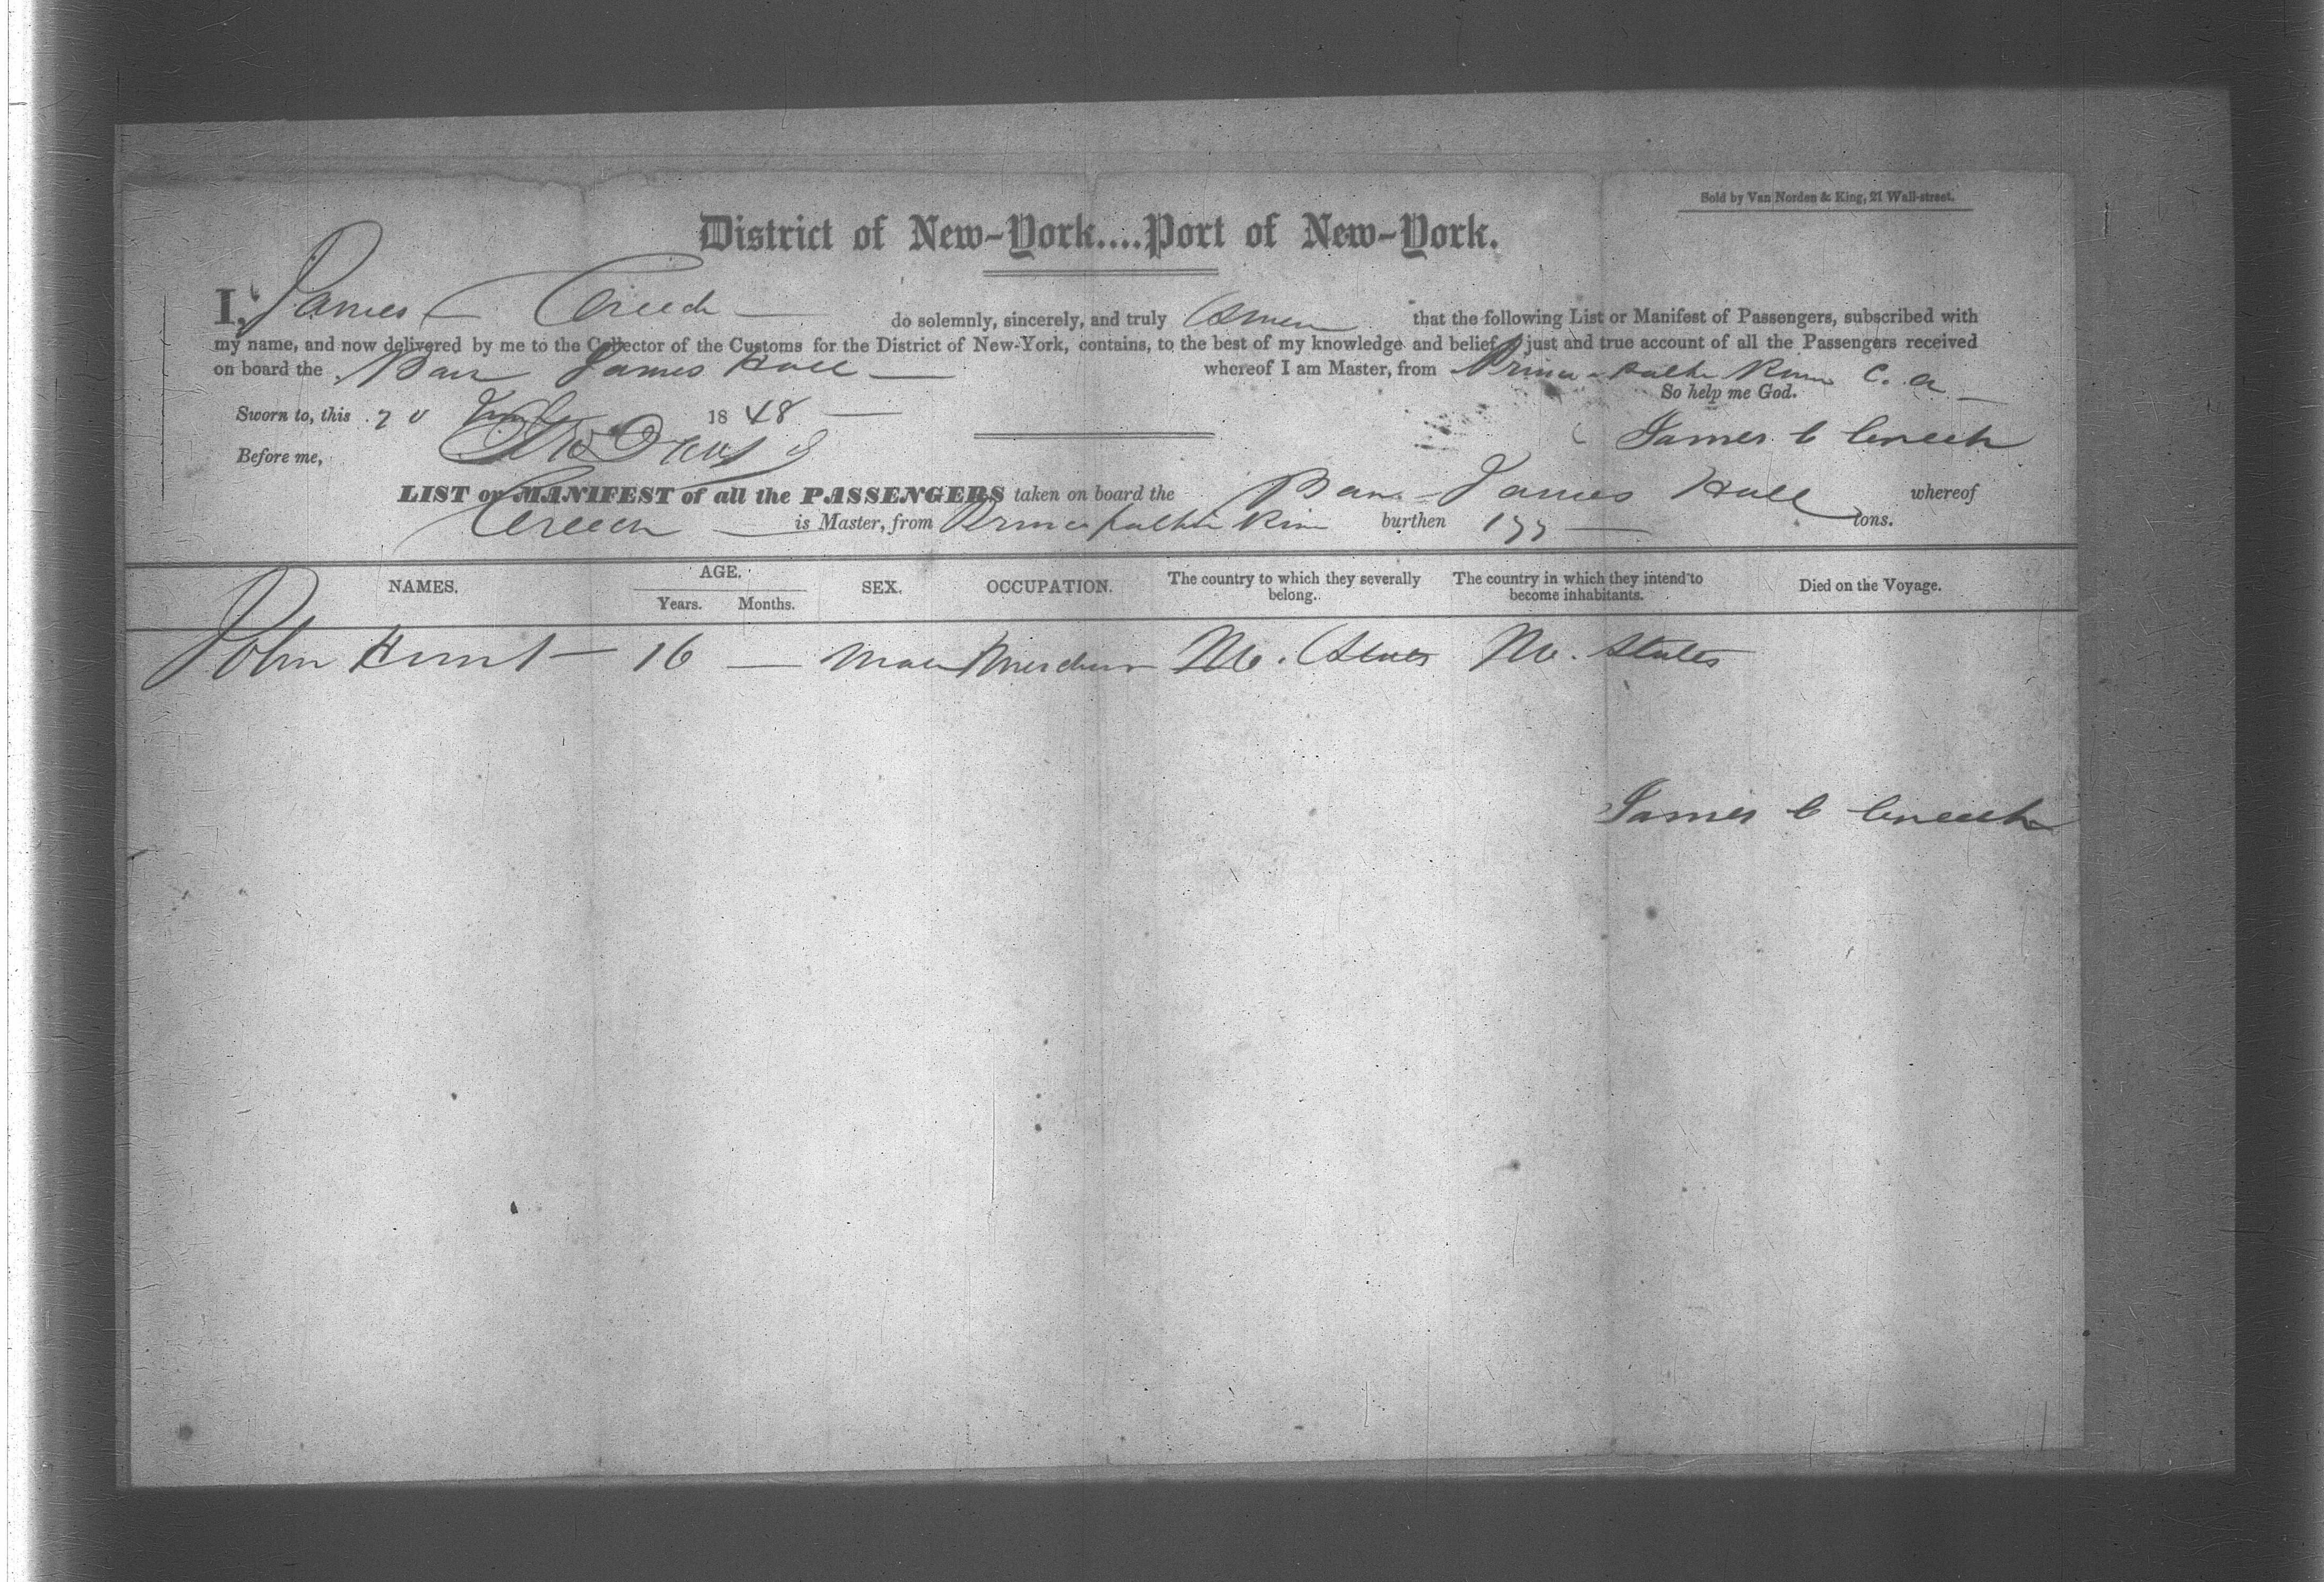 Sold by Van Norden & King, 21 Wall-street.
District of New-York....Port of New-York.
I, James Creech do solemnly, sincerely, and truly swear that the following List or Manifest of Passengers, subscribed with
my name, and now delivered by me to the Collector of the Customs for the District of New-York, contains, to the best of my knowledge and belief, a just and true account of all the Passengers received
on board the James Hall whereof I am Master, from C. A
So help me God.
Sworn to, this 20 1848
James C Creech
Before me,
LIST or MANIFEST of all the PASSENGERS taken on board the James Hall whereof
Creech is Master, from burthen 177 tons.
NAMES. AGE. SEX. OCCUPATION. The country to which they severally belong. The country in which they intend to become inhabitants. Died on the Voyage.
Years. Months.
John Hunt 16 Male States States
James C Creech